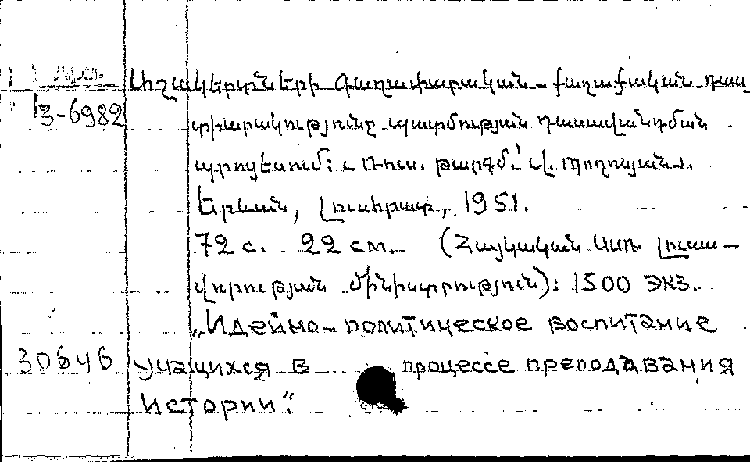 Աշակերտների գաղափարական-քաղաքական դաս
З-6982
տիարակությունը պատմության դասավանդման
պրոցեսում: Ռուս. թարգմ.՝ Վ.
Երևան, Լուսհրատ, 1951.
72 с. 22 см. (Հայկական ՍՍՌ Լուսա-
վորության մինիստրություն): 1500 экз.
„Идейно-политическое воспитание
30646 учащихся в процессе преподавания
истории“.